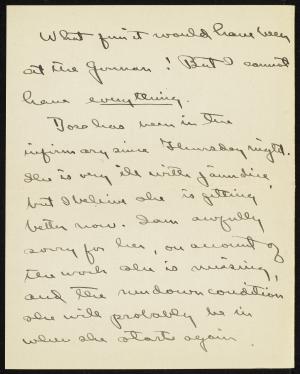 What fun it would have been
at the German! But I cannot
have everything.
Dora has been in the
infirmary since Thursday night.
She is very ill with jaundice,
but I believe she is getting
better now. I am awfully
sorry for her, on account of
the work she is missing,
and the rundown condition
she will probably be in
when she starts again.